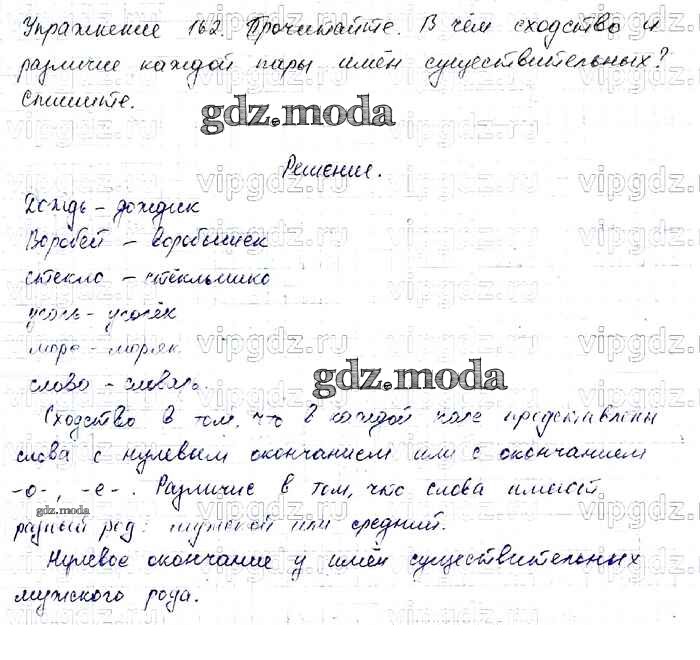 Упражнение 162. Прочитайте. В чём сходство и
различие каждой пары имён существительных?
Спишите.
gdz.moda
Решение.
Дождь – дождик
Воробей – воробышек
стекло – стёклышко
море – моряк
слово – словарь.
gdz.moda
Сходство в том, что в каждой представлены
слова с нулевым окончанием или с окончанием
-о-, -е-. Различие в том, что слова имеют
gdz.moda
разный род: мужской или средний.
Нулевое окончание у имён существительных
мужского рода.
vipgdz.ru